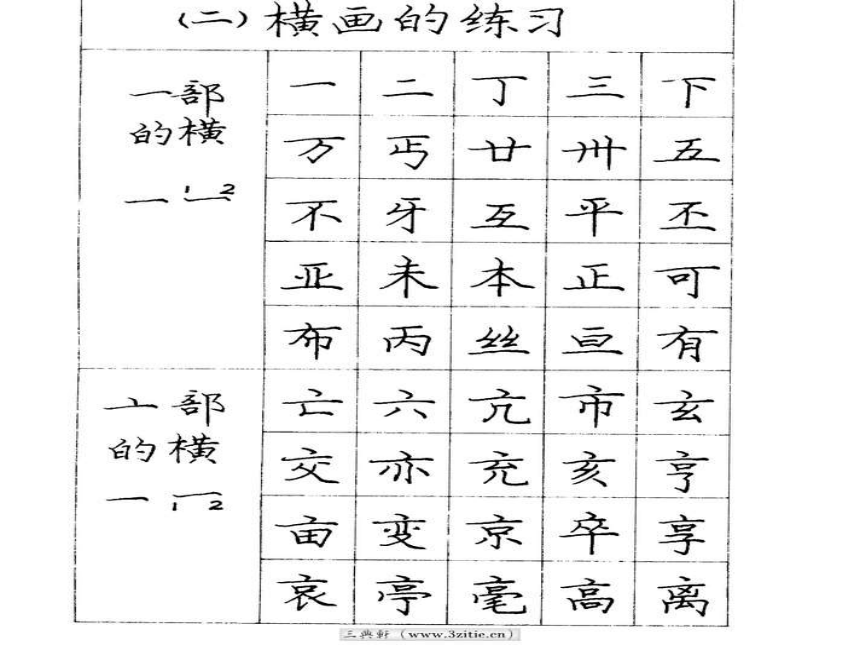 (二)横画的练习
一部
的横
一 1 2
一 二 丁 三 下
万 丐 廿 卅 五
不 牙 互 平 丕
亚 未 本 正 可
布 丙 丝 亘 有
亠部
的横
一 1 2
亡 六 亢 市 玄
交 亦 充 亥 亨
亩 变 京 卒 享
哀 亭 毫 高 离
三典轩（www.3zitie.cn）